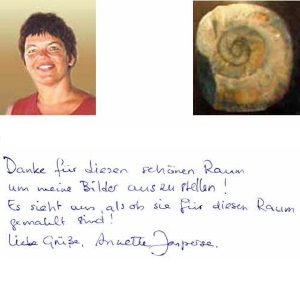 Danke für diesen schönen Raum
um meine Bilder auszustellen!
Es sieht aus, als ob sie für diesen Raum
gemahlt sind!
Liebe Grüße, Annette